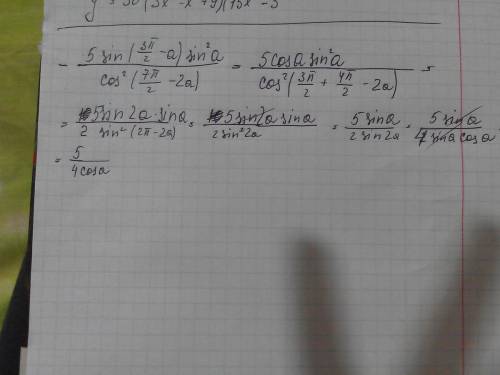 y = 30(3x - x + 9)(15x - 3
- 5 sin(3π/2 - a) sin²a / cos²(7π/2 - 2a) = 5cosa sin²a / cos²(3π/2 + 4π/2 - 2a) =
= 5sin2a · sina / 2 sin²(2π - 2a) = 5sin2a sina / 2sin²2a = 5 sina / 2 sin2a = 5 sina / 4 sina cosa
= 5 / 4cosa